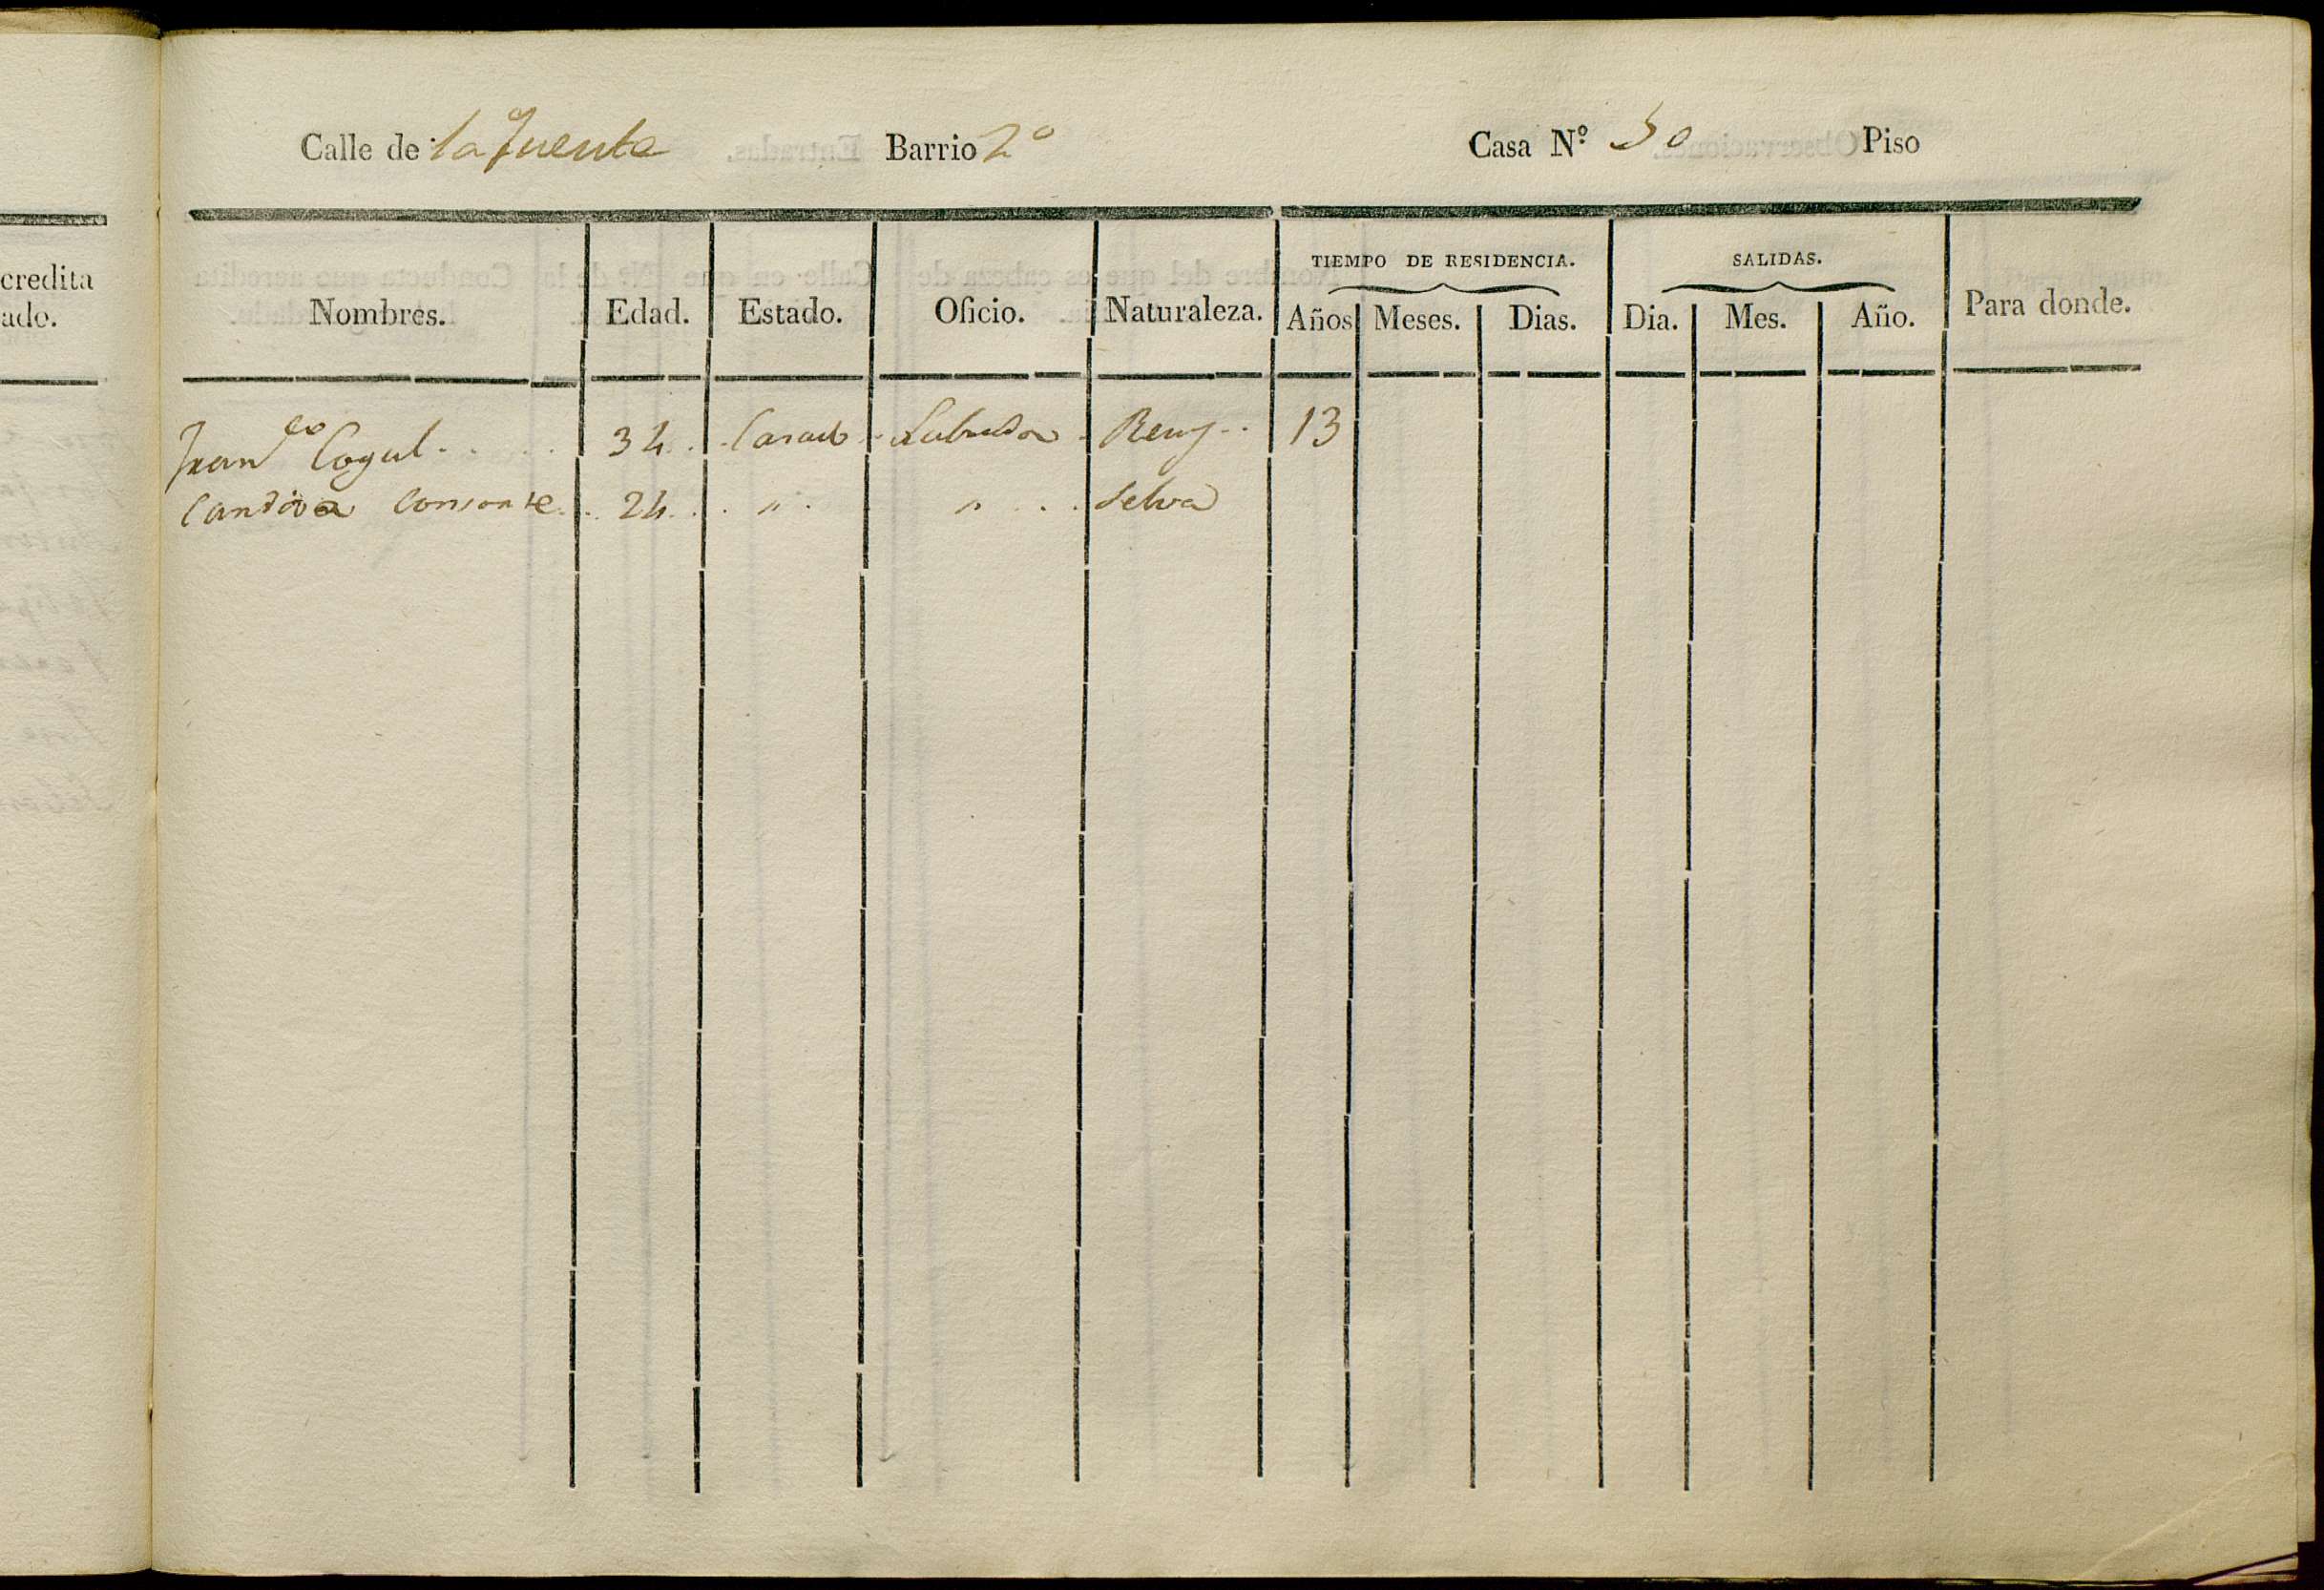 credita
ado.
Calle de la fuente Barrio 2º Casa Nº 50 Piso
TIEMPO DE RESIDENCIA. SALIDAS.
Nombres. Edad. Estado. Oficio. Naturaleza. Años Meses. Dias. Dia. Mes. Año. Para donde.
Franco Cogul 34 Casado Labrador Reus 13
Candida Consorte 24 " " Selva